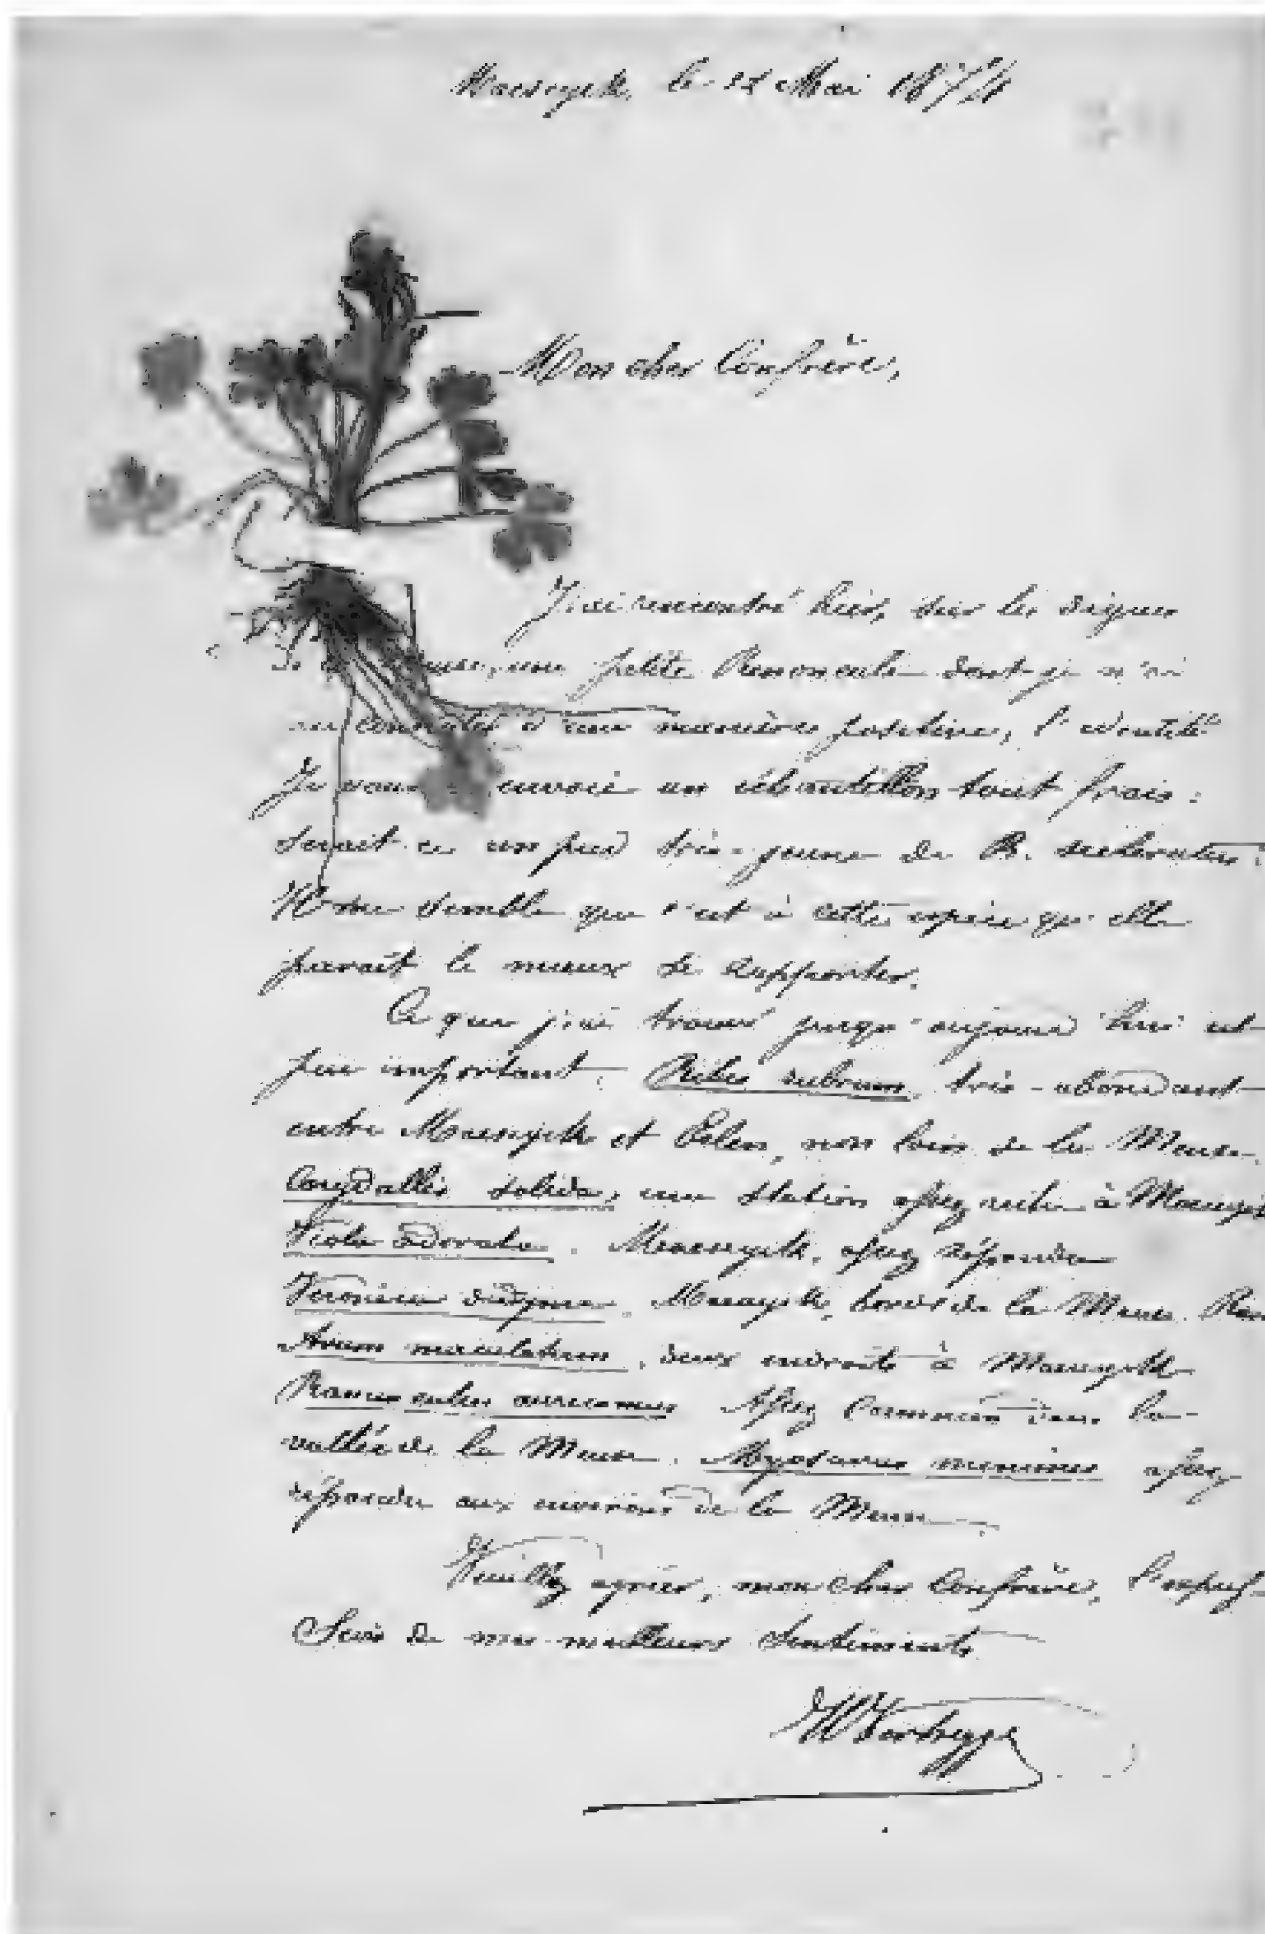 Maeseyck, le 12 Mai 1874
Mon cher Confrère,
J'ai rencontré hier, sur les digues
de la Meuse, une petite Renoncule dont je n'ai
pu constater d'une manière positive, l'identité
Je vous envoie un échantillon tout frais :
serait-ce un pied très-jeune de R. sceleratus ?
Il me semble que c'est à cette espèce qu'elle
paraît le mieux se rapporter.
Ce que j'ai trouvé jusqu'aujourd'hui est
peu important. Ribes rubrum, très-abondant
entre Maeseyck et Eelen, non loin de la Meuse.
Corydallis solida, une station assez riche à Maeseyck
Viola odorata. Maeseyck, assez répandu
Veronica didyma. Maeseyck, bords de la Meuse.
Arum maculatum, deux endroits à Maeseyck
Ranunculus auricomus Assez commun dans la
vallée de la Meuse. Myosurus minimus assez
répandu aux environs de la Meuse.
Veuillez agréer, mon cher Confrère, l'expres-
sion de mes meilleurs sentiments